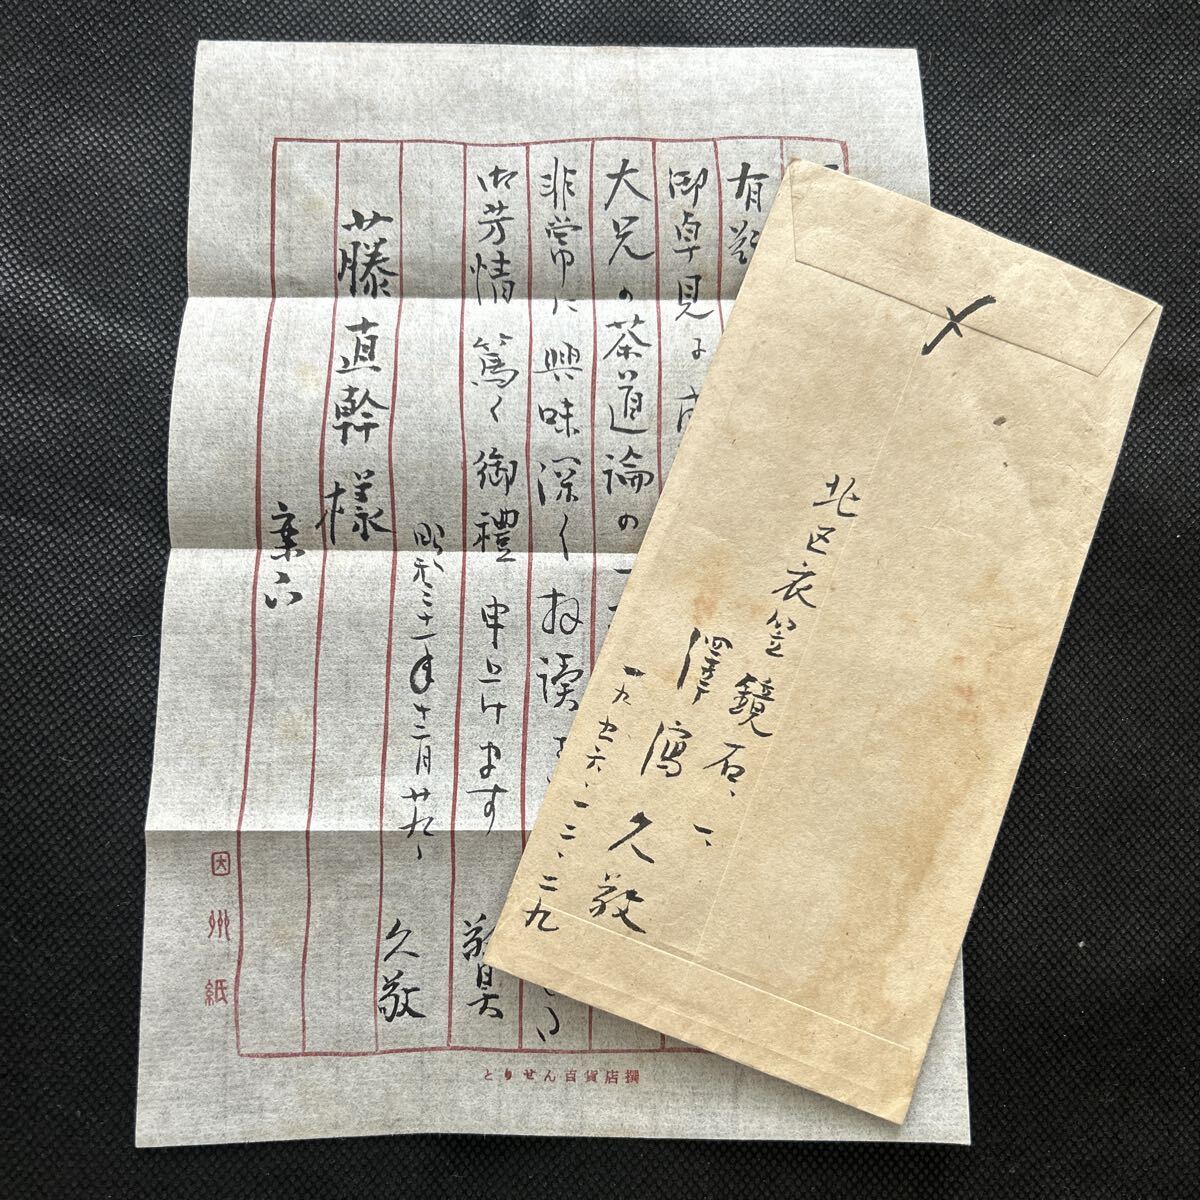 有
御卓見に
大兄の茶道論の
非常に興味深く拝読
御芳情篤く御禮申上げます
敬具
昭和三十一年十二月廿九、
久敬
藤直幹様
案下
因州紙
とりせん百貨店撰
〆
北区衣笠鏡石、一、
澤瀉久敬
一九五六・一二・二九